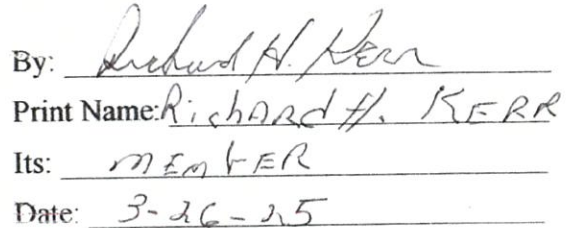 By: Richard H. Kerr
Print Name: Richard H. KERR
Its: MEMbER
Date: 3-26-25